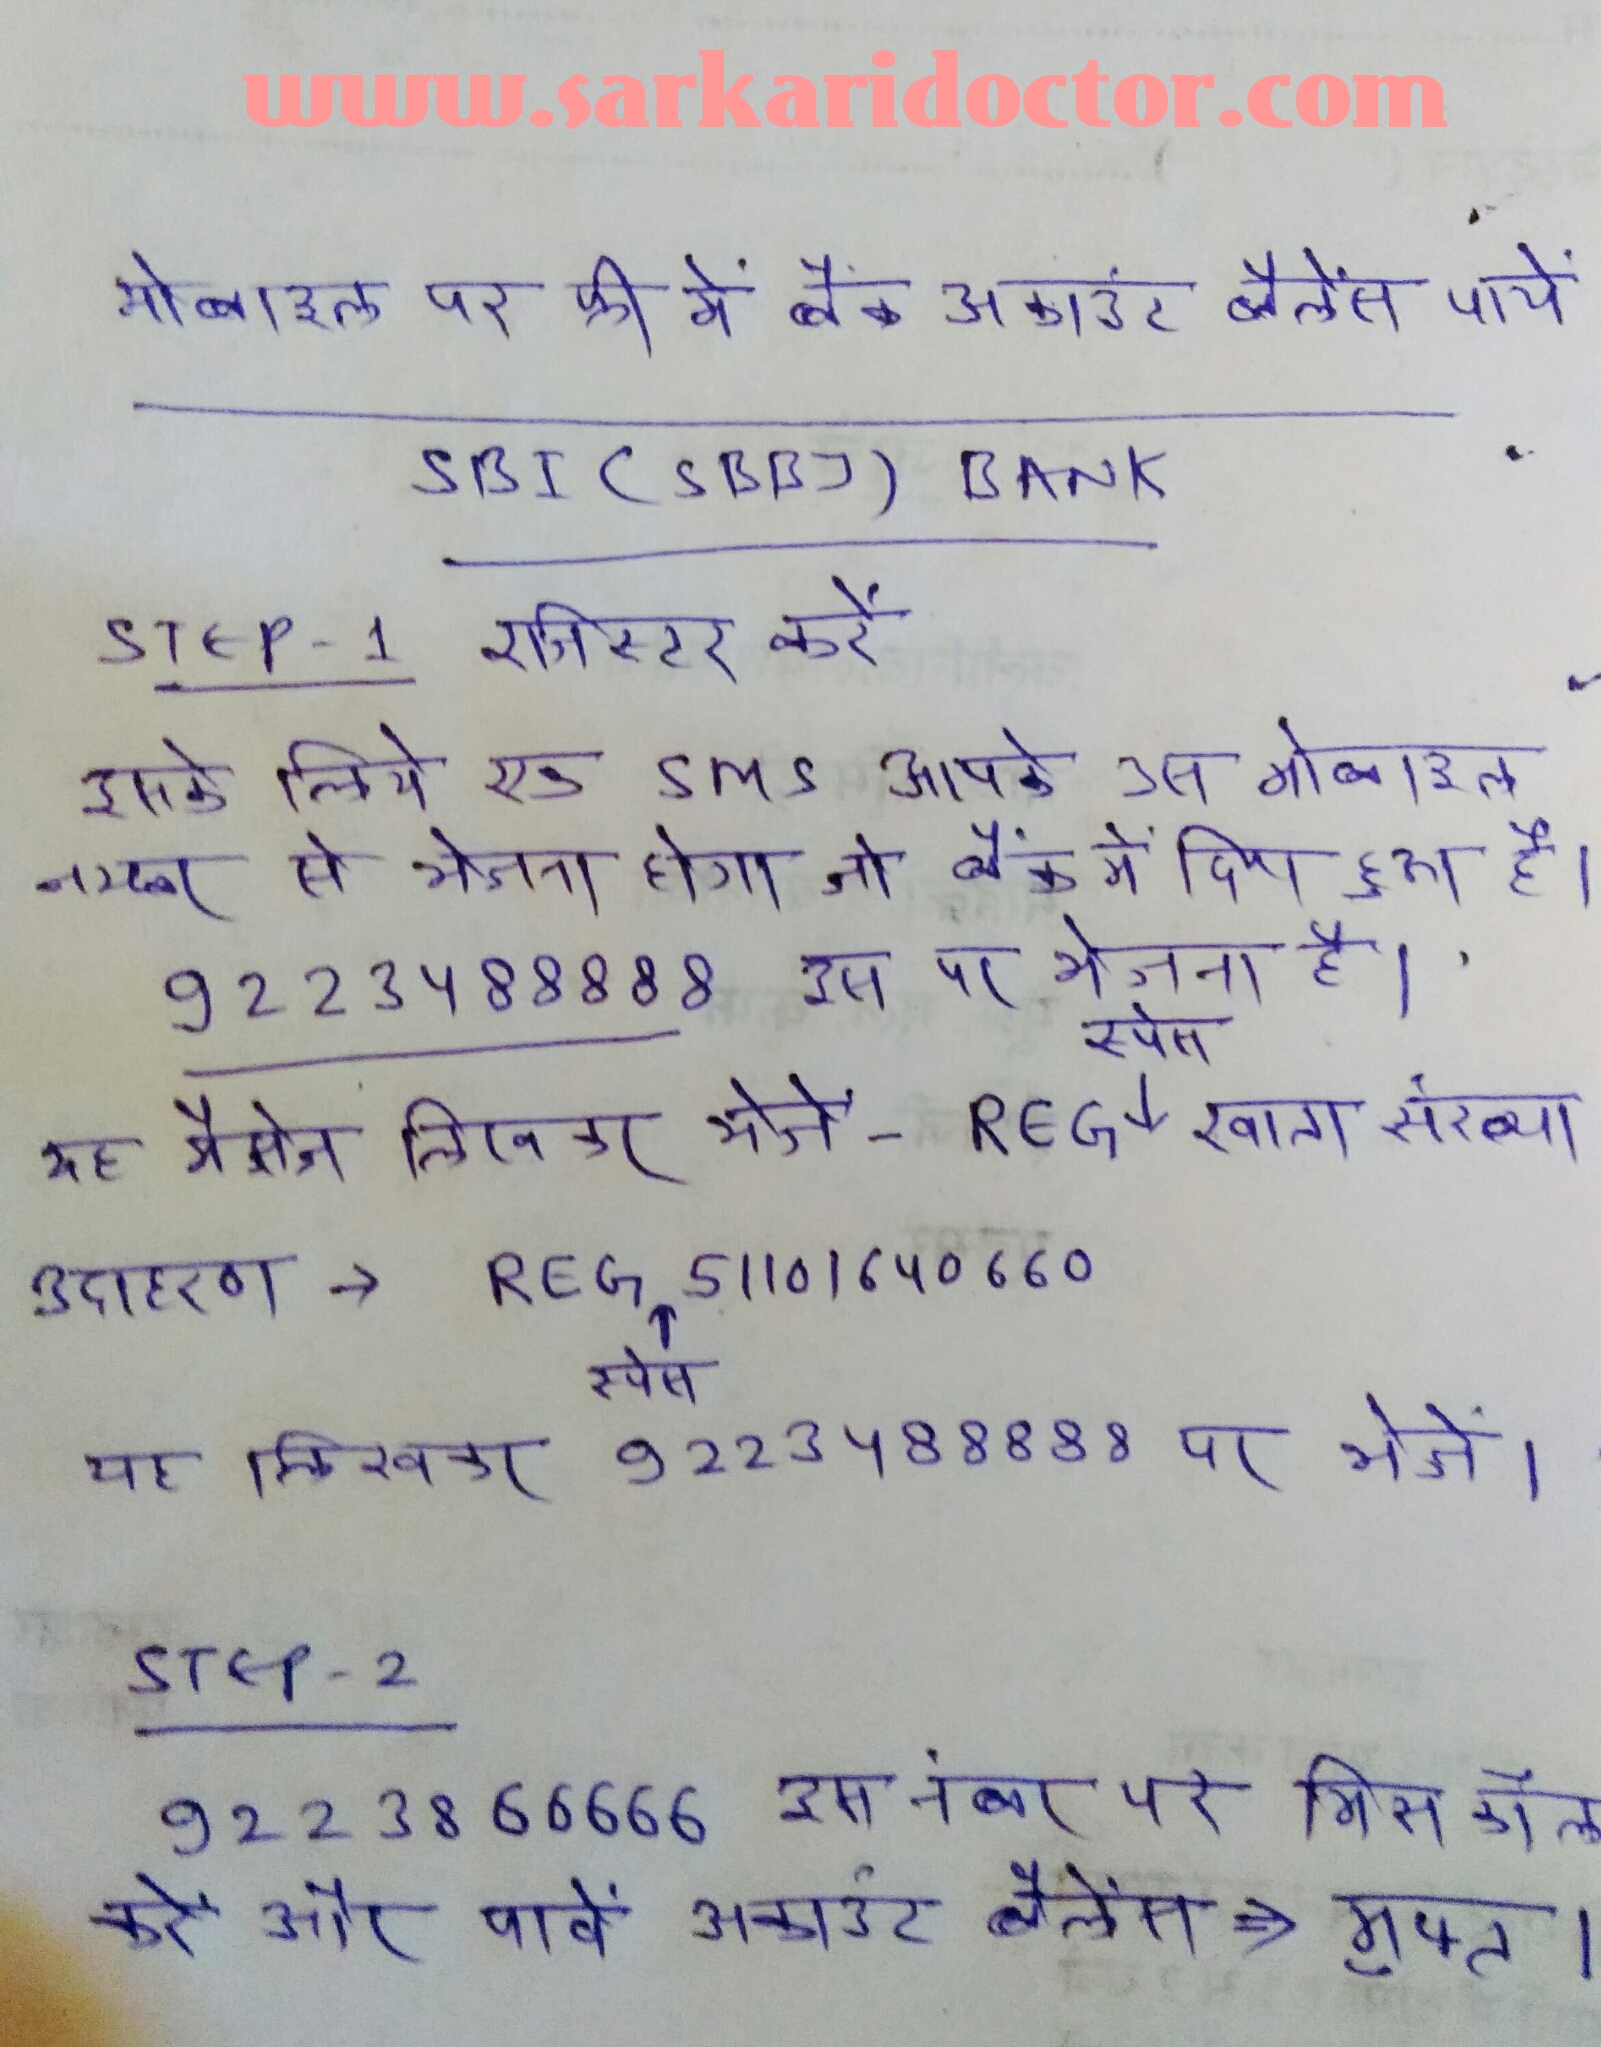 www.sarkaridoctor.com
मोबाइल पर फ्री में बैंक अकाउंट बैलेंस पायें
SBI (SBBJ) BANK
STEP-1 रजिस्टर करें
इसके लिये एक SMS आपके उस मोबाइल
नम्बर से भेजना होगा जो बैंक में दिया हुआ है।
9223488888 इस पर भेजना है।
स्पेस
यह मैसेज लिखकर भेजें - REG↓ खाता संख्या
उदाहरण → REG 51101640660
↑
स्पेस
यह लिखकर 9223488888 पर भेजें।
STEP-2
9223866666 इस नंबर पर मिस कॉल
करें और पावें अकाउंट बैलेंस ⇒ मुफ्त।